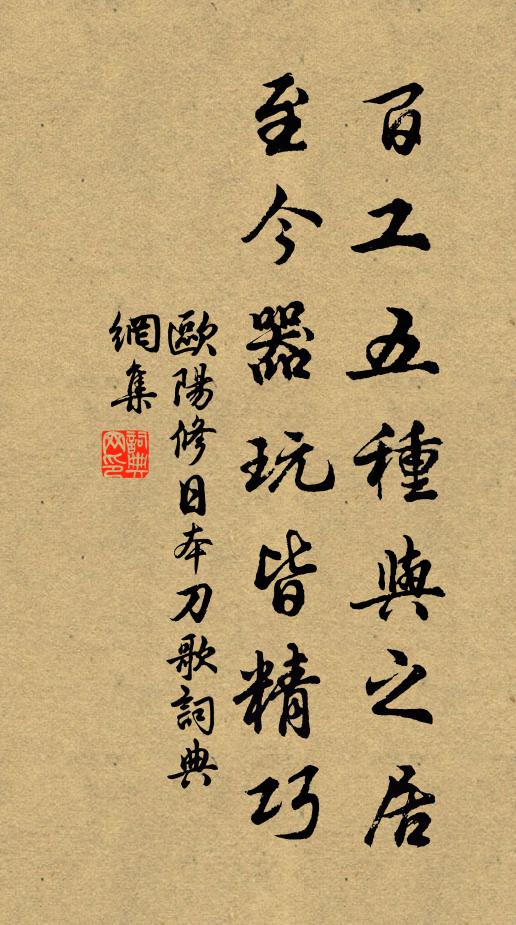 百工五種與之居
至今器玩皆精巧
歐陽修日本刀歌詞典
網集
詞典
网印